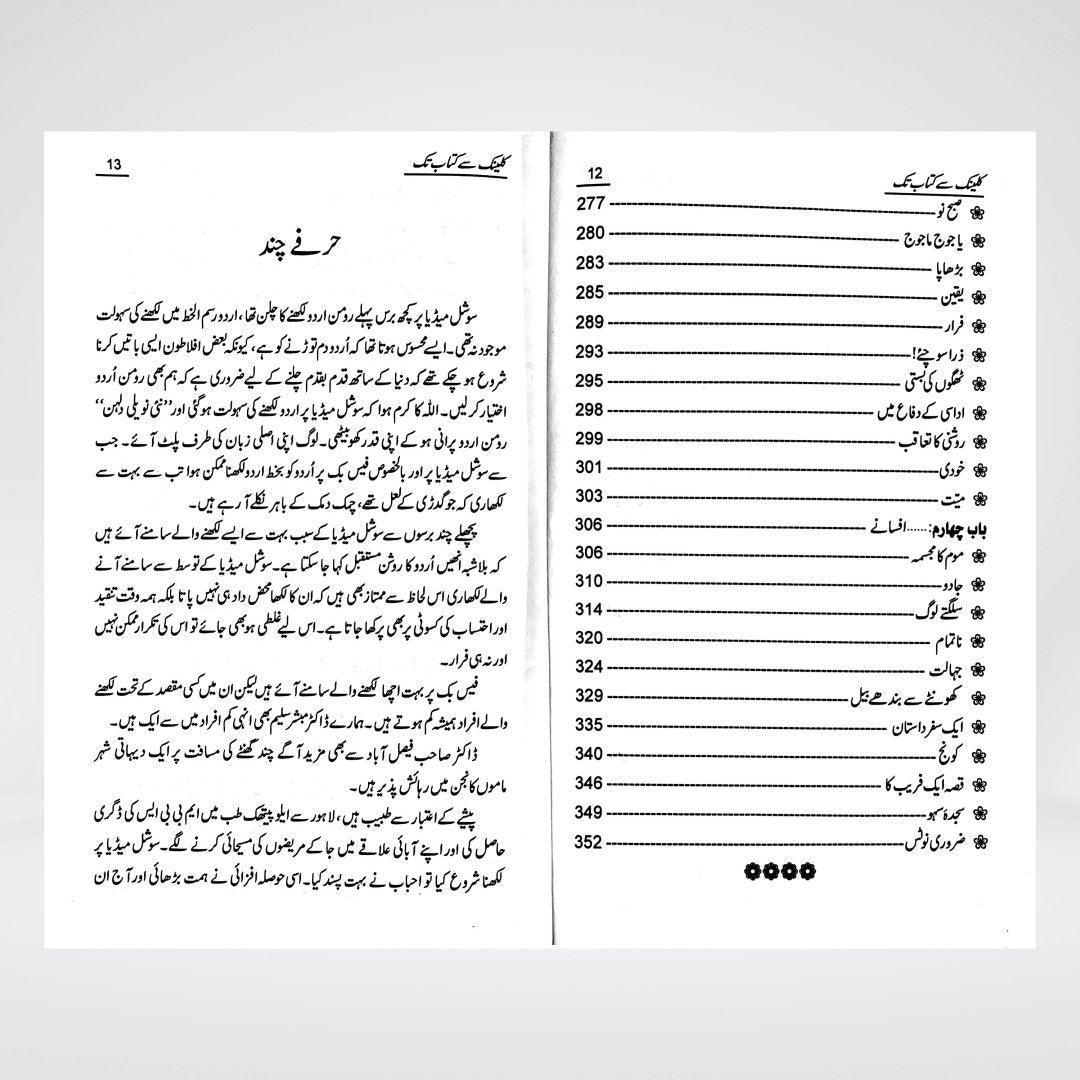 کلینک سے کتاب تک 12
صبح نو 277
یاجوج ماجوج 280
بڑھاپا 283
یقین 285
فرار 289
ذرا سوچئے! 293
ٹھگوں کی بستی 295
اداسی کے دفاع میں 298
روشنی کا تعاقب 299
خودی 301
میّت 303
باب چہارم:......افسانے 306
موم کا مجسمہ 306
جادو 310
سلگتے لوگ 314
ناتمام 320
جہالت 324
کھونٹے سے بندھے بیل 329
ایک سفر داستان 335
کونج 340
قصہ ایک فریب کا 346
سجدہ سہو 349
ضروری نوٹس 352
کلینک سے کتاب تک 13
حرفے چند
سوشل میڈیا پر کچھ برس پہلے رومن اردو لکھنے کا چلن تھا، اردو رسم الخط میں لکھنے کی سہولت
موجود نہ تھی۔ ایسے محسوس ہوتا تھا کہ اُردو دم توڑنے کو ہے، کیونکہ بعض افلاطون ایسی باتیں کرنا
شروع ہو چکے تھے کہ دنیا کے ساتھ قدم بقدم چلنے کے لیے ضروری ہے کہ ہم بھی رومن اُردو
اختیار کر لیں۔ اللہ کا کرم ہوا کہ سوشل میڈیا پر اردو لکھنے کی سہولت ہو گئی اور ’’نئی نویلی دلہن‘‘
رومن اردو پرانی ہو کے اپنی قدر کھو بیٹھی۔ لوگ اپنی اصلی زبان کی طرف پلٹ آئے۔ جب
سے سوشل میڈیا پر اور بالخصوص فیس بک پر اُردو کو بخط اردو لکھنا ممکن ہوا تب سے بہت سے
لکھاری کہ جو گدڑی کے لعل تھے، چمک دمک کے باہر نکلے آ رہے ہیں۔
پچھلے چند برسوں سے سوشل میڈیا کے سبب بہت سے ایسے لکھنے والے سامنے آئے ہیں
کہ بلاشبہ انھیں اُردو کا روشن مستقبل کہا جا سکتا ہے۔ سوشل میڈیا کے توسط سے سامنے آنے
والے لکھاری اس لحاظ سے ممتاز بھی ہیں کہ ان کا لکھا محض داد ہی نہیں پاتا بلکہ ہمہ وقت تنقید
اور احتساب کی کسوٹی پر بھی پرکھا جاتا ہے۔ اس لیے غلطی ہو بھی جائے تو اس کی تکرار ممکن نہیں
اور نہ ہی فرار۔
فیس بک پر بہت اچھا لکھنے والے سامنے آئے ہیں لیکن ان میں کسی مقصد کے تحت لکھنے
والے افراد ہمیشہ کم ہوتے ہیں۔ ہمارے ڈاکٹر مبشر سلیم بھی انہی کم افراد میں سے ایک ہیں۔
ڈاکٹر صاحب فیصل آباد سے بھی مزید آگے چند گھنٹے کی مسافت پر ایک دیہاتی شہر
ماموں کانجن میں رہائش پذیر ہیں۔
پیشے کے اعتبار سے طبیب ہیں، لاہور سے ایلوپیتھک طب میں ایم بی بی ایس کی ڈگری
حاصل کی اور اپنے آبائی علاقے میں جا کے مریضوں کی مسیحائی کرنے لگے۔ سوشل میڈیا پر
لکھنا شروع کیا تو احباب نے بہت پسند کیا۔ اسی حوصلہ افزائی نے ہمت بڑھائی اور آج ان